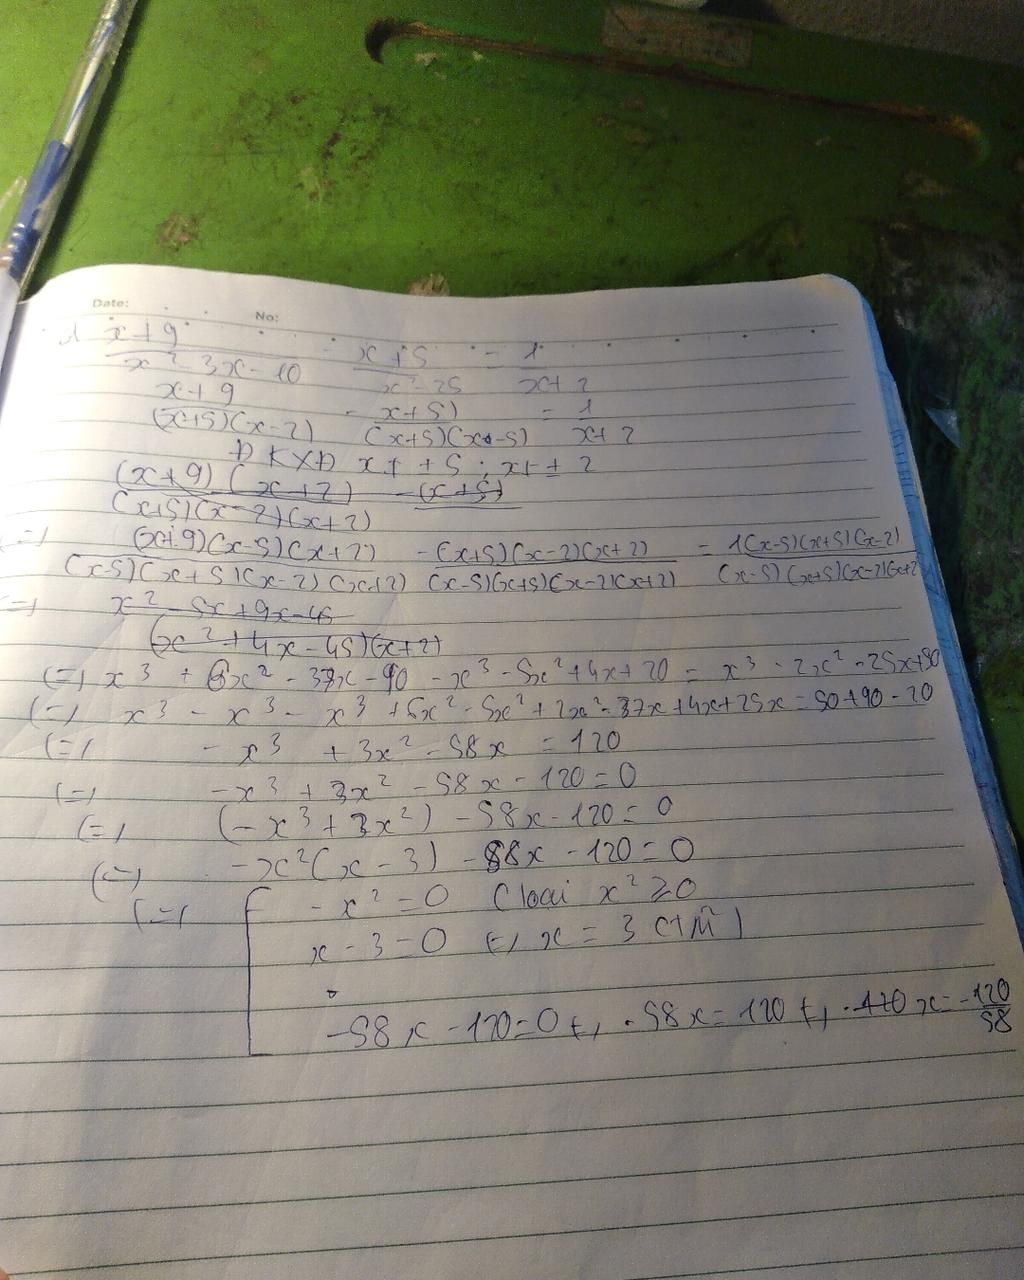 Date:
No:
1 x+9/x²-3x-10 - x+5/x²-25 = 1/x+2
x+9/(x+5)(x-2) - x+5)/(x+5)(x-5) = 1/x+2
ĐKXĐ x≠±5; x≠±2
(x+9)(x+2)/(x+5)(x-2)(x+2) - (x+5)
(=) (x+9)(x-5)(x+2)/(x-5)(x+5)(x-2)(x+2) - (x+5)(x-2)(x+2)/(x-5)(x+5)(x-2)(x+2) = 1(x-5)(x+5)(x-2)/(x-5)(x+5)(x-2)(x+2
(=) x²-5x+9x-45
(x²+4x-45)(x+2)
(=) x³ + 6x² - 37x - 90 - x³ - 5x² + 4x + 20 = x³ - 2x² - 25x + 50
(=) x³ - x³ - x³ + 6x² - 5x² + 2x² - 37x + 4x + 25x = 50 + 90 - 20
(=) - x³ + 3x² - 58x = 120
(=) -x³ + 3x² - 58x - 120 = 0
(=) (-x³ + 3x²) - 58x - 120 = 0
(=) -x²(x - 3) - 58x - 120 = 0
(=) -x² = 0 (loại x² ≥ 0
x - 3 = 0 (=) x = 3 (TM)
-58x - 120 = 0 (=) -58x = 120 (=) x = -120/58